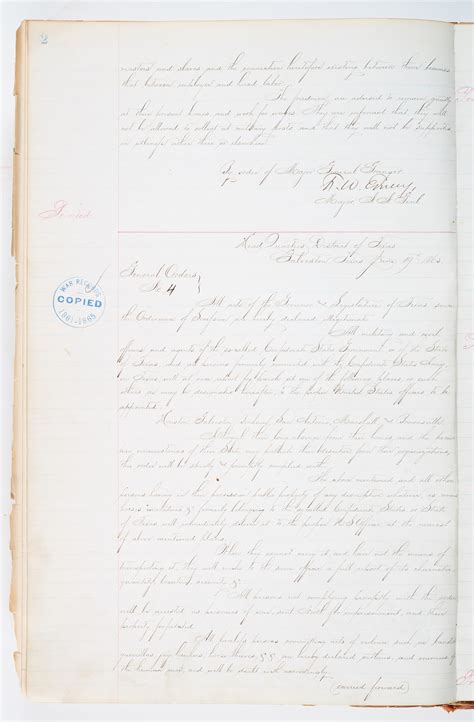 2
masters and slaves and the connection heretofore existing between them becomes
that between employer and hired labor.
The freedmen are advised to remain quietly
at their present homes and work for wages. They are informed that they will
not be allowed to collect at military posts and that they will not be supported
in idleness either there or elsewhere
By order of Major General Granger
F. W. Emery
Major A. A. Genl
Printed
Head Quarters District of Texas
Galveston Texas June 19th 1865
General Orders
No 4
WAR RECORDS
COPIED
1861-1865
All acts of the Governor & Legislature of Texas since
the Ordinance of Secession are hereby declared illegitimate
All military and civil
officers and agents of the so-called Confederate States Government or of the State
of Texas, and all persons formerly connected with the Confederate States Army
in Texas, will at once report for parole at any of the following places, or such
others as may be designated hereafter, to the proper United States Officers to be
appointed
Houston Galveston San Antonio, Marshall & Brownsville
Although the long absence from their homes and the
circumstances of this State may the from their organizations
the order will be strictly & faithfully complied with
The above mentioned and all other
persons having in their possession public property of any description whatever, as arms
horses munitions & formerly belonging to the so-called Confederate States or State
of Texas will immediately deliver it to the proper U S Officer at the nearest
of above mentioned places.
When they cannot carry it and have not the means of
transporting it they will make to the same officer a full report of its character
quantity location security &c
All persons not complying promptly with this order
will be arrested as prisoners of war, sent North for imprisonment, and their
property forfeited
All persons committing acts of violence such as banditti
guerrillas jay hawkers horse thieves &c &c are hereby declared outlaws, and enemies of
the human race, and will be dealt with accordingly
(carried forward)